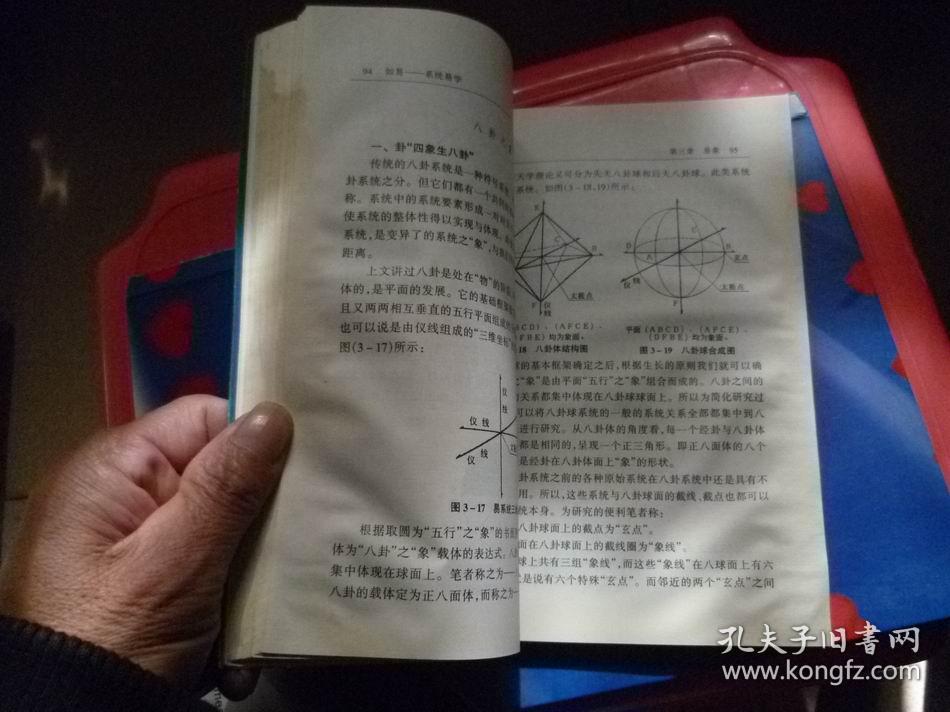 94 如易——系统易学
八卦
一、卦“四象生八卦”
传统的八卦系统是一种符号
卦系统之分。但它们都有一个
称。系统中的系统要素形成一对
使系统的整体性得以实现与体现。
系统,是变异了的系统之“象”,与
距离。
上文讲过八卦是处在“物”的
体的,是平面的发展。它的基础框架
且又两两相互垂直的五行平面组成的
也可以说是由仪线组成的“三维坐标”
图(3-17)所示:
仪线
仪线
仪线
图3-17 易系统三
根据取圆为“五行”之“象”的
体为“八卦”之“象”载体的表达式。
集中体现在球面上。笔者称之为一
八卦的载体定为正八面体,而称之为一
第三章 易象 95
天学推论又可分为先天八卦球和后天八卦球。此类系统
系统。如图(3-18,19)所示:
E
C
B
F
仪线
太极点
E
D
C
A
B
玄点
仪线
太极点
F
ABCD)、(AFCE)、
FBE)均为象面。
18 八卦体结构图
平面(ABCD)、(AFCE)、
(DFBE)均为象面。
图3-19 八卦球合成图
的基本框架确定之后,根据生长的原则我们就可以确
之“象”是由平面“五行”之“象”组合而成的。八卦之间的
的关系都集中体现在八卦球球面上。所以为简化研究过
可以将八卦球系统的一般的系统关系全部都集中到八
进行研究。从八卦体的角度看,每一个经卦与八卦体
都是相同的,呈现一个正三角形。即正八面体的八个
是经卦在八卦体面上“象”的形状。
卦系统之前的各种原始系统在八卦系统中还是具有不
用。所以,这些系统与八卦球面的截线、截点也都可以
统本身。为研究的便利笔者称:
八卦球面上的截点为“玄点”。
面在八卦球面上的截线圈为“象线”。
球上共有三组“象线”,而这些“象线”在八球面上有六
是说有六个特殊“玄点”。而邻近的两个“玄点”之间
孔夫子旧書网
www.kongfz.com